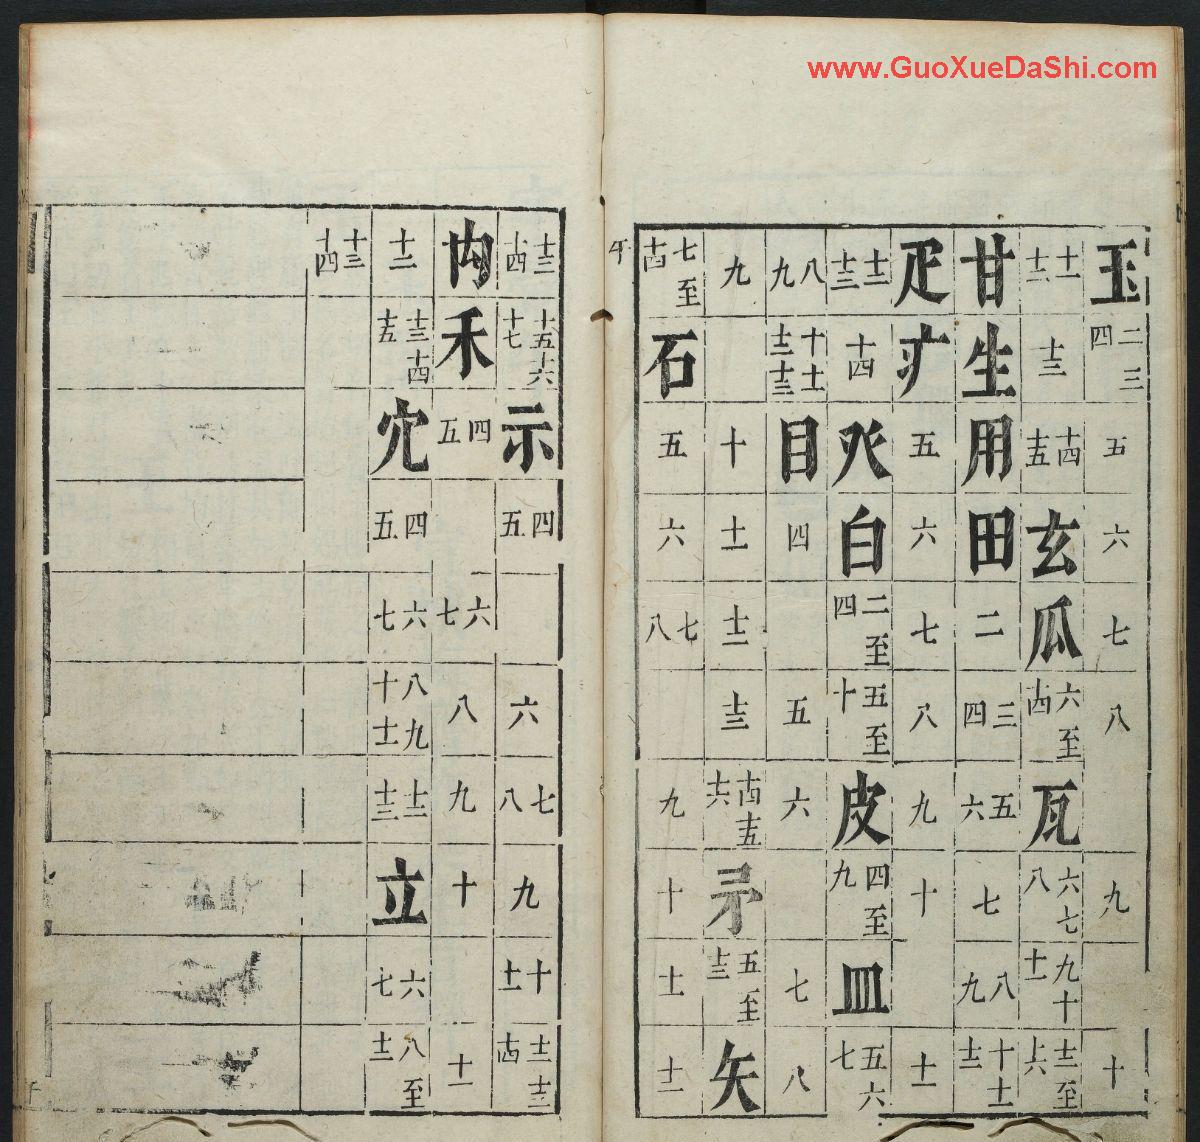 www.GuoXueDaShi.com
玉 二三四 五 六 七 八 九 十
十一十二 十三 十四十五 玄 瓜 六至十四 瓦 六七八 九十十一 十二至十六
甘 生 用 田 二 三四 五六 七 八九 十十一十二
疋 疒 五 六 七 八 九 十 十一
十二十三 十四 癶 白 二至四 五至十 皮 四至九 皿 五六七
八九 十十一十二十三 目 四 五 六 七 八
九 十 十一 十二 十三 十四十五十六 矛 五至十三 矢
七至十四 石 五 六 七八 九 十 十一 十二
午
十三十四 十五十六十七 示 四五 六 七八 九 十十一 十二十三十四
禸 禾 四五 六七 八 九 十 十一
十二 十三十四十五 穴 四五 六七 八九十十一 十二十三 立 六七 八至十二
十三十四